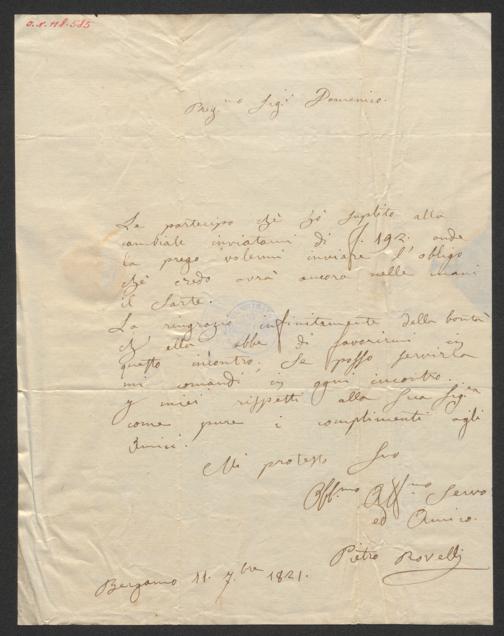 Preg.mo Sig.r Domenico.
La partecipo chè hò suplito alla
cambiale inviatami di f. 192. onde
la prego volermi inviare l'obligo
chè credo avrà ancora nelle mani
il Sarte.
La ringrazio infinitamente della bontà
ch ella ebbe di favorirmi in
questo incontro, Se posso servirla
mi comandi in ogni incontro.
y miei rispetti alla Sua Sig.ra
come pure i complimenti agli
Amici.
Mi protesto Suo
Obb.mo Aff.mo Servo
ed Amico.
Pietro Rovelli
Bergamo 11. 7.bre 1821.